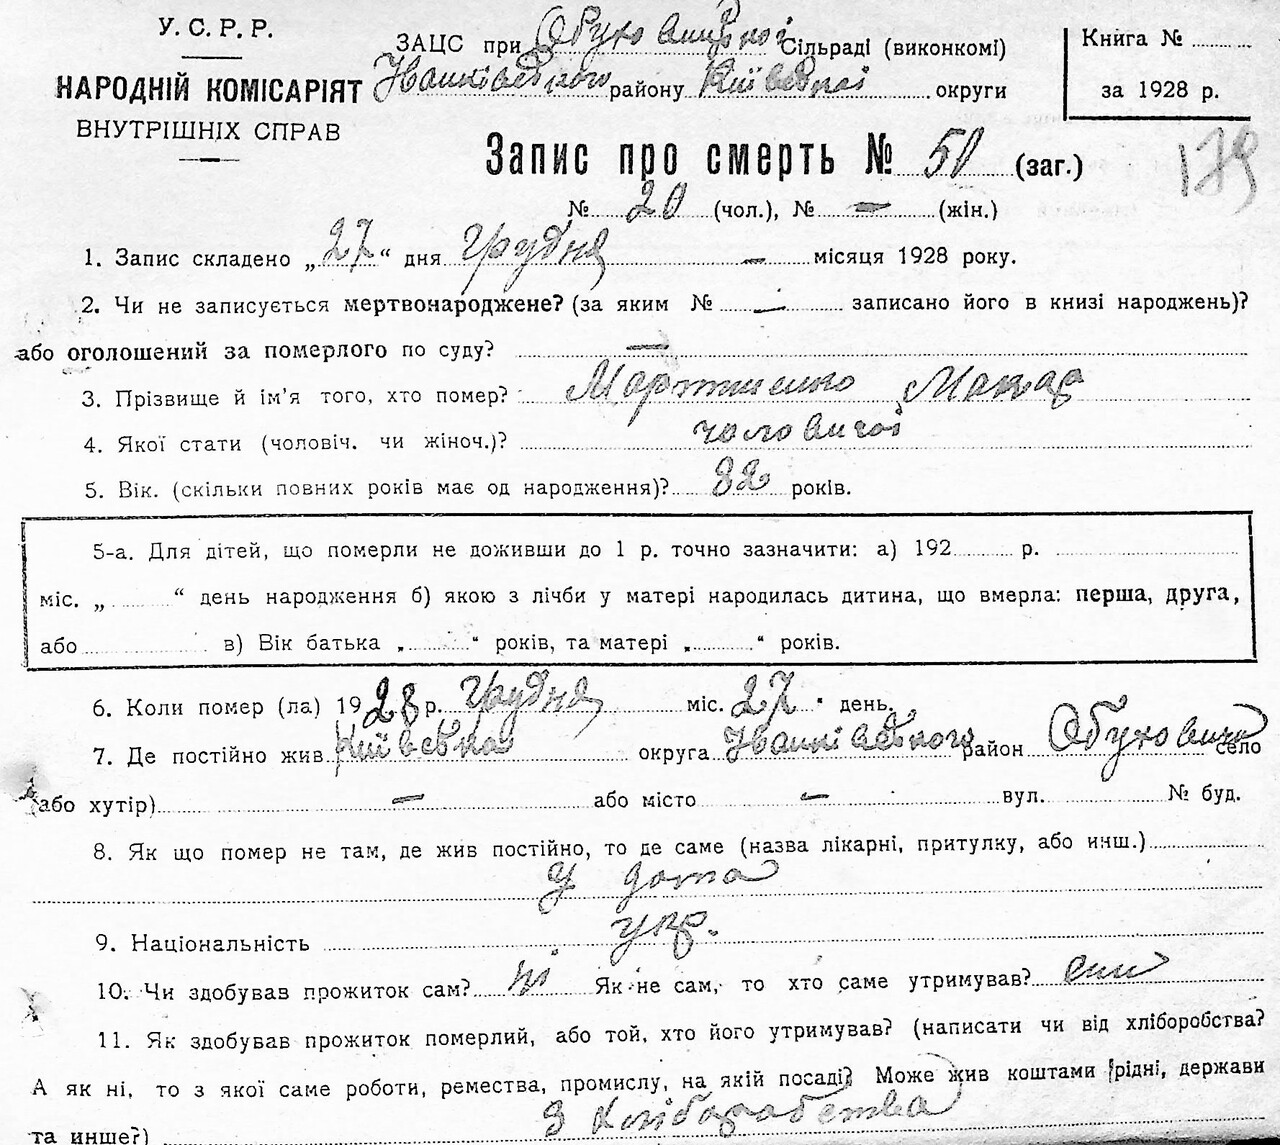 У.С.Р.Р.
НАРОДНІЙ КОМІСАРІЯТ
ВНУТРІШНІХ СПРАВ
ЗАЦС при Обуховицької Сільраді (виконкомі)
Іванківського району Київської округи
Книга №
за 1928 р.
179
Запис про смерть № 50 (заг.)
№ 20 (чол.), № — (жін.)
1. Запис складено „27“ дня грудня — місяця 1928 року.
2. Чи не записується мертвонароджене? (за яким № — записано його в книзі народжень)?
або оголошений за померлого по суду? —
3. Прізвище й ім'я того, хто помер? Мартиненко Макар
4. Якої стати (чоловіч. чи жіноч.)? чоловичої
5. Вік. (скільки повних років має од народження)? 82 років.
5-а. Для дітей, що померли не доживши до 1 р. точно зазначити: а) 192 р.
міс. „ “ день народження б) якою з лічби у матері народилась дитина, що вмерла: перша, друга,
або в) Вік батька „ “ років, та матері „ “ років.
6. Коли помер (ла) 1928 р. грудня міс. 27 день.
7. Де постійно жив Київська округа Іванківського район Обуховичи село
(або хутір) — або місто — вул. № буд.
8. Як що помер не там, де жив постійно, то де саме (назва лікарні, притулку, або инш.)
У дома
9. Національність укр.
10. Чи здобував прожиток сам? ні Як не сам, то хто саме утримував? син
11. Як здобував прожиток померлий, або той, хто його утримував? (написати чи від хліборобства?
А як ні, то з якої саме роботи, ремества, промислу, на якій посаді? Може жив коштами рідні, держави
та инше?) З хліборобства